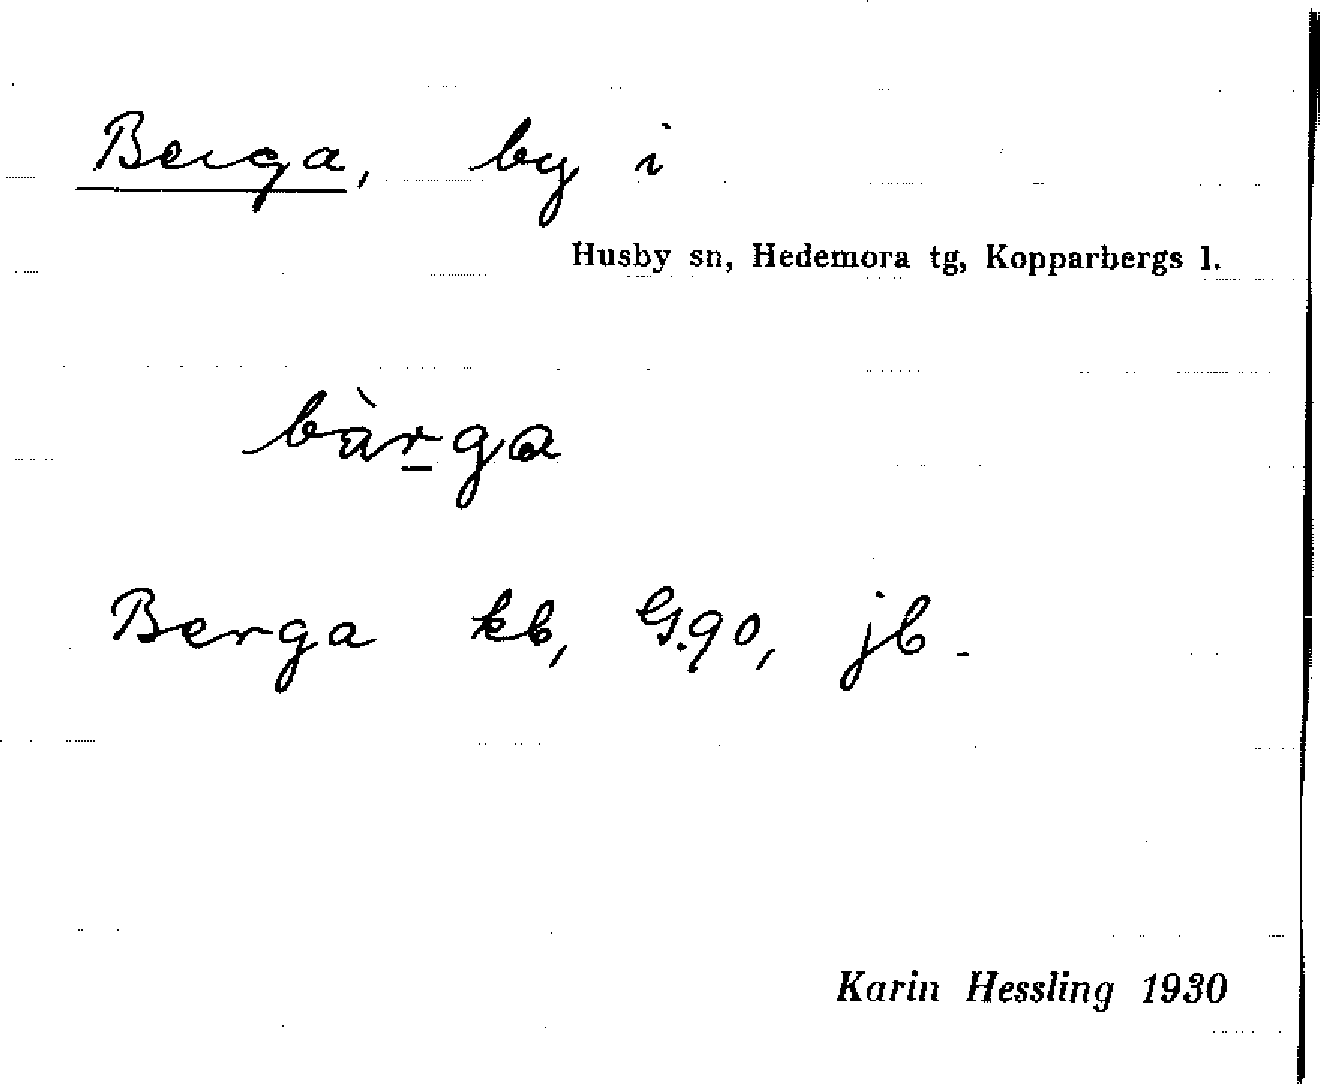 Berga, by i
Husby sn, Hedemora tg, Kopparbergs l.
bàrga
Berga kb, G.90, jb.
Karin Hessling 1930